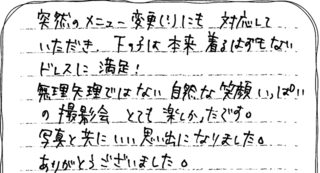 突然のメニュー変更(!)にも 対応して
いただき、下の子は本来 着るはずもない
ドレスに 満足!
無理矢理ではない 自然な笑顔いっぱい
の 撮影会 とても 楽しかったです。
写真と共に いい 思い出になりました。
ありがとうございました。